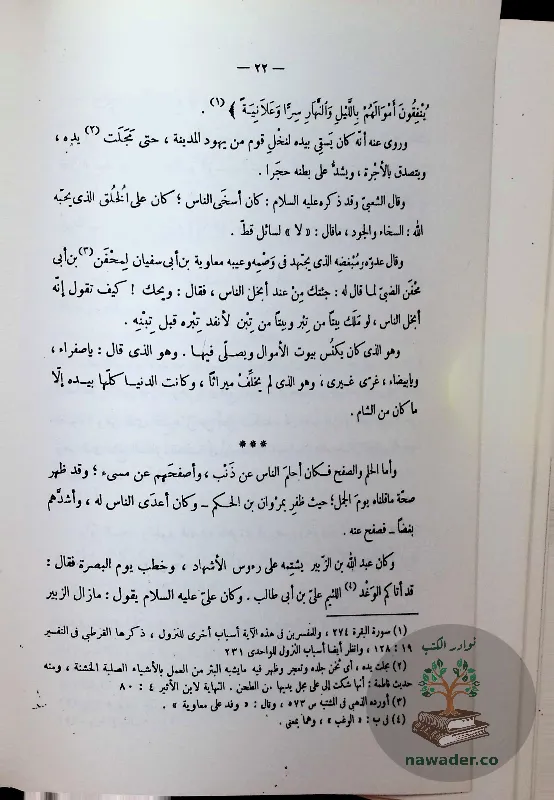 — ٢٢ —
يُنْفِقُونَ أَمْوَالَهُمْ بِاللَّيْلِ وَالنَّهَارِ سِرًّا وَعَلَانِيَةً ﴾ (١) .
وروى عنه أنّه كان يَستِي بيده لنخلِ قوم من يهود المدينة ، حتى مَجَلَت (٢) يده ،
ويتصدق بالأجرة ، ويشدُّ على بطنه حجَرا .
وقال الشعبيّ وقد ذكره عليه السلام : كان أسخَى الناس ؛ كان على الخُلق الذى يحبّه
الله : السخاء والجود ، ماقال : « لا » لسائل قطّ .
وقال عدوّه ومُبْغِضه الذى يجتهد فى وَصْمِه وعيبه معاوية بن أبى سفيان لِمحْفَن (٣) بن أبى
محْفَن الضبىّ لما قال له : جئتك مِنْ عند أبخل الناس ، فقال : ويحك ! كيف تقول إنّه
أبخل الناس ، لو مَلَك بيتًا من تِبْر وبيتًا من تِبْن لأنفد تِبْره قبل تِبْنِه .
وهو الذى كان يكنُس بيوت الأموال ويصلّى فيها . وهو الذى قال : ياصفراء ،
ويابيضاء ، غرّى غيرى ، وهو الذى لم يخلّف ميراثًا ، وكانت الدنيا كلّها بيده إلّا
ماكان من الشام .
***
وأما الحلم والصفح فكان أحلَم الناس عن ذَنْب ، وأصفحَهم عن مسىء ؛ وقد ظهر
صحّة ماقلناه يومَ الجمل ؛ حيث ظفر بمرْوان بن الحكم ــ وكان أعدَى الناس له ، وأشدَّهم
بغضًا ــ فصفح عنه .
وكان عبد الله بن الزّبير يشتِمه على رءوس الأشهاد ، وخطب يوم البصرة فقال :
قد أتاكم الوَغْد (٤) اللئيم علىّ بن أبى طالب . وكان علىّ عليه السلام يقول : مازال الزبير
(١) سورة البقرة ٢٧٤ ، وللمفسرين فى هذه الآية أسباب أخرى للنزول ، ذكرها القرطبى فى التفسير
١٩ : ١٢٨ ، وانظر أيضا أسباب النزول للواحدى ٢٣١
(٢) مجلت يده ، أى ثخن جلده وتعجر وظهر فيه مايشبه البثر من العمل بالأشياء الصلبة الخشنة ، ومنه
حديث فاطمة : أنها شكت إلى على مجل يديها من الطحن . النهاية لابن الأثير ٤ : ٨٠
(٣) أورده الذهبى فى المشتبه س ٥٧٣ ، وقال : « وفد على معاوية » .
(٤) فى ب : « الوغب » ، وهما بمعنى .
نوادر الكتب
nawader.co